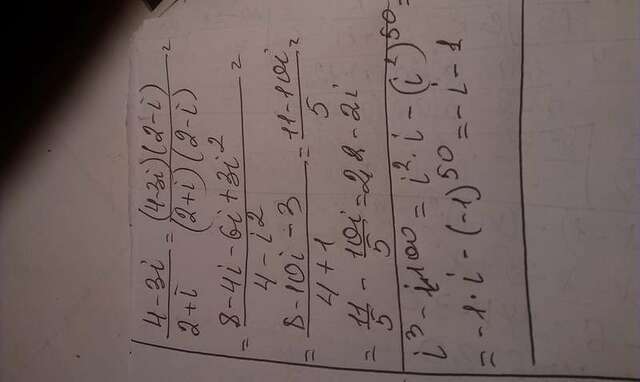 (4-3i)/(2+i) = ((4-3i)(2-i))/((2+i)(2-i)) =
= (8-4i-6i+3i²)/(4-i²) =
= (8-10i-3)/(4+1) = (11-10i)/5 =
= 11/5 - 10i/5 = 2,2-2i
i³ - i¹⁰⁰ = i²·i-(i²)⁵⁰ =
= -1·i-(-1)⁵⁰ = -i-1